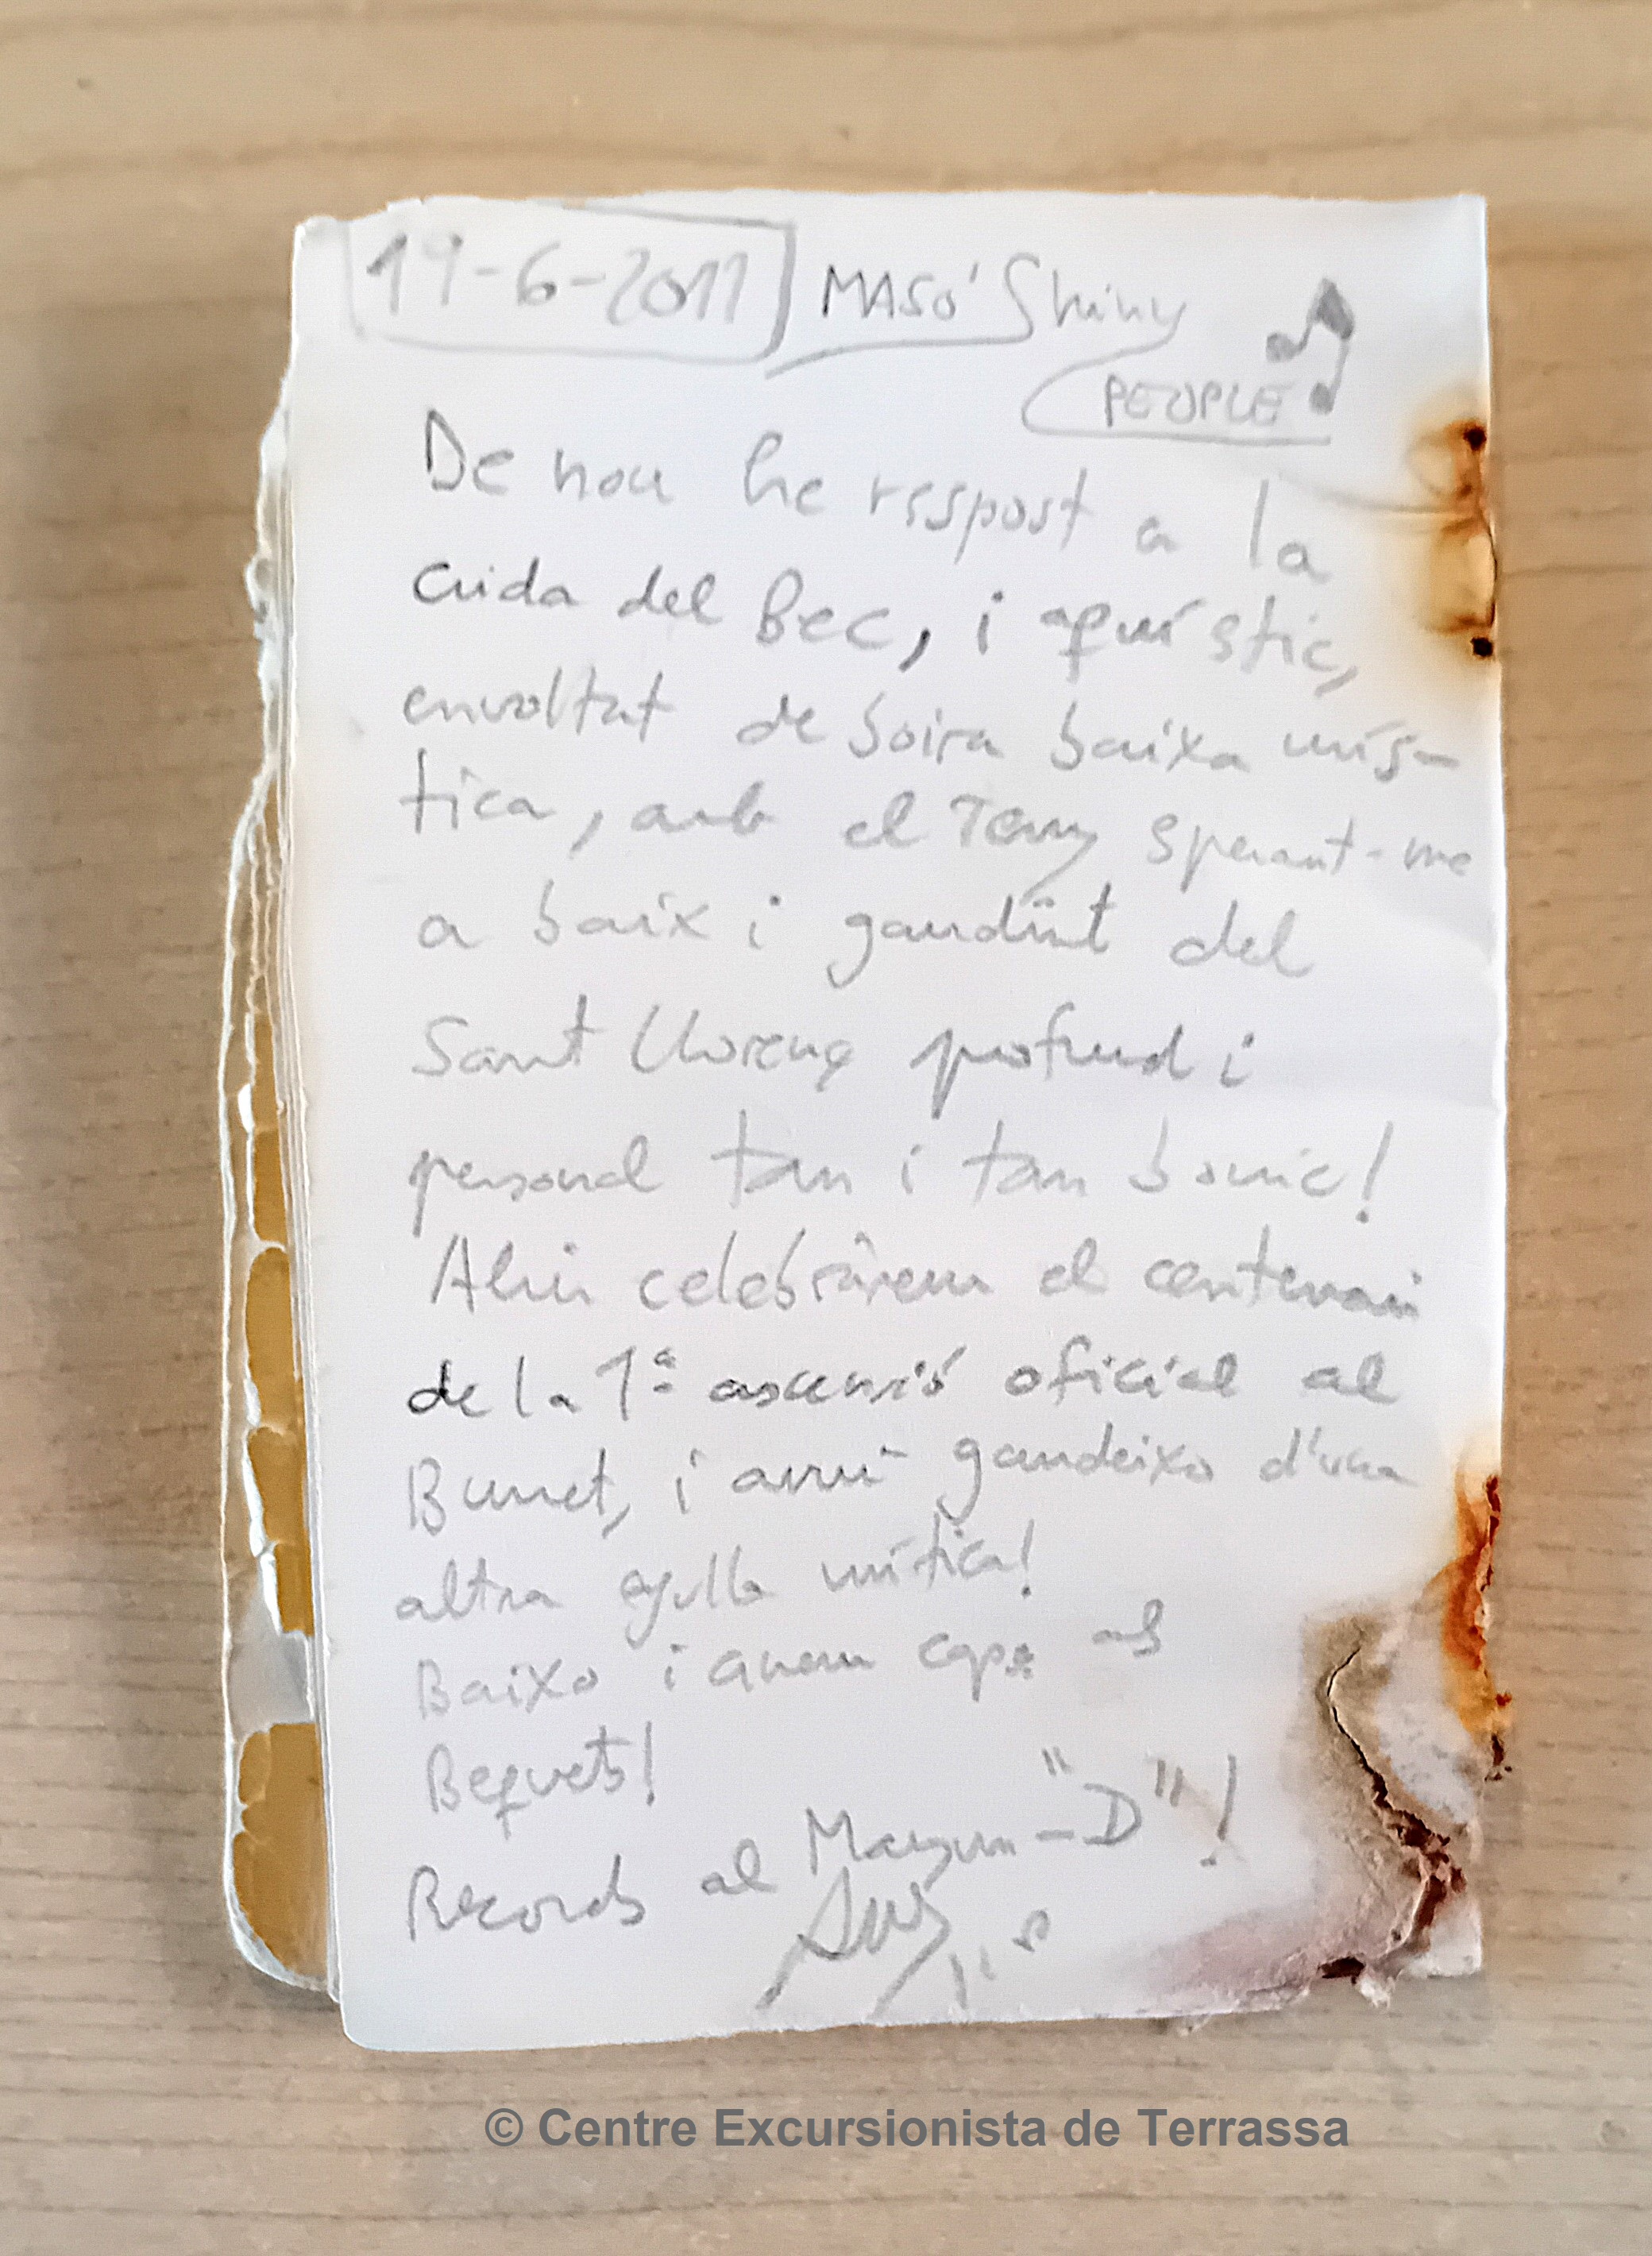 19-6-2011 MASÓ Shiny
PEOPLE
De nou he respost a la
cuida del Bec, i aquí stic,
envoltat de boira baixa mís-
tica, amb el Temy sperant-me
a baix i gaudint del
Sant Llorenç profund i
personal tan i tan bonic!
Ahir celebràrem el centenari
de la 1ª ascensió oficial al
Burret, i avui gaudeixo d'una
altra agulla mítica!
Baixo i anem cap als
Bequets!
Records al "D"!
© Centre Excursionista de Terrassa